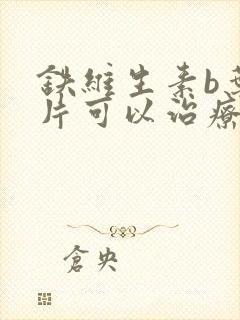 鉄維生素b
片可以治療
倉央